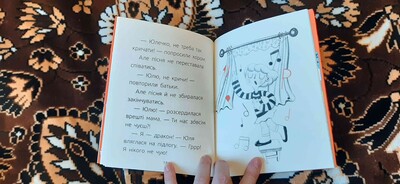 — Юлечко, не треба так
кричати! — попросили тато й мама.
Але пісня не переставала
співатись.
— Юлю, не кричи! —
повторили батьки.
Але пісня й не збиралася
закінчуватись.
— Юлю! — розсердилася
врешті мама. — Ти нас зовсім
не чуєш?
— Я — дракон! — Юля
вляглася на підлогу. — Гррр!
Я нікого не чую!